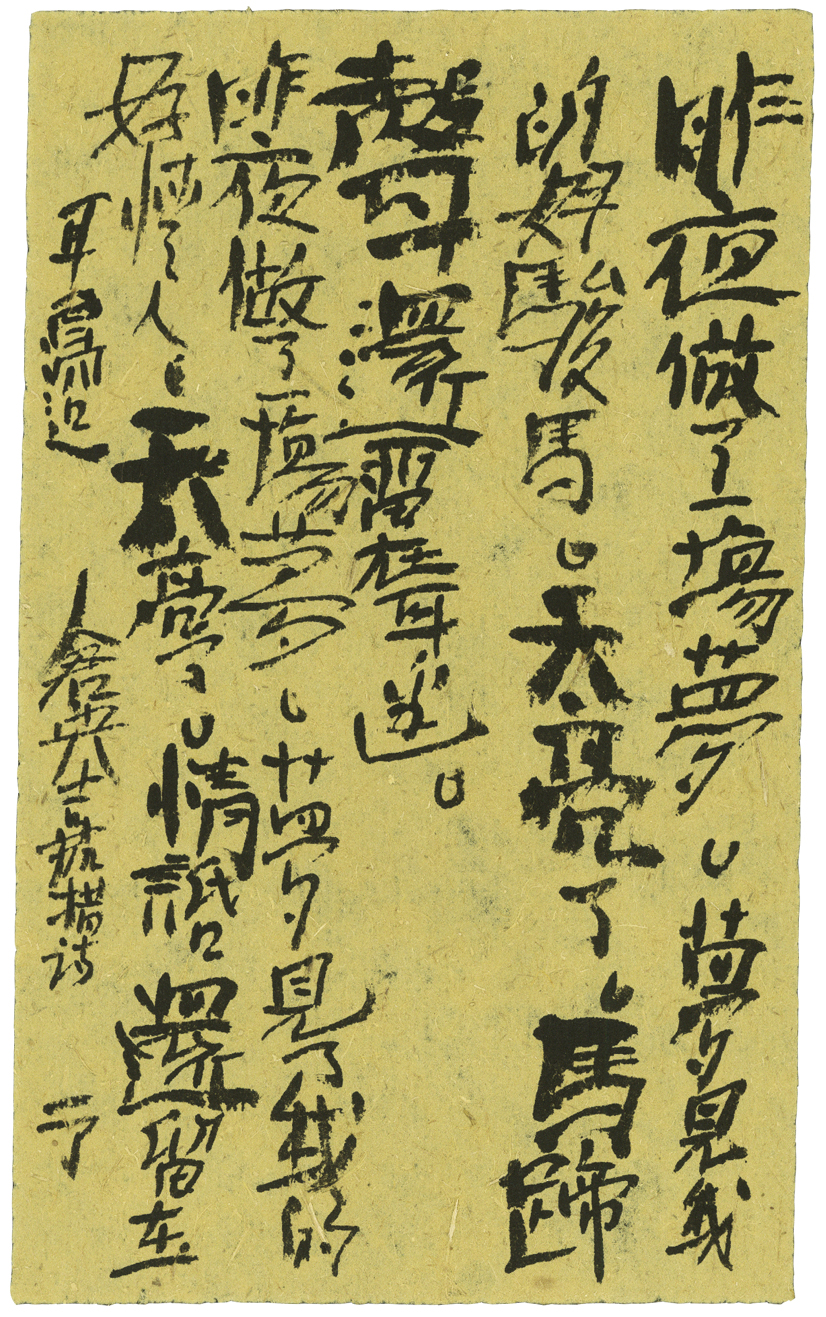 昨夜做了一場夢、夢見我
的好駿馬、天亮了、馬蹄
聲還留在耳邊。
昨夜做了一場夢、夢見了我的
好情人、天亮了、情話還留在
耳窩邊 倉央嘉措诗